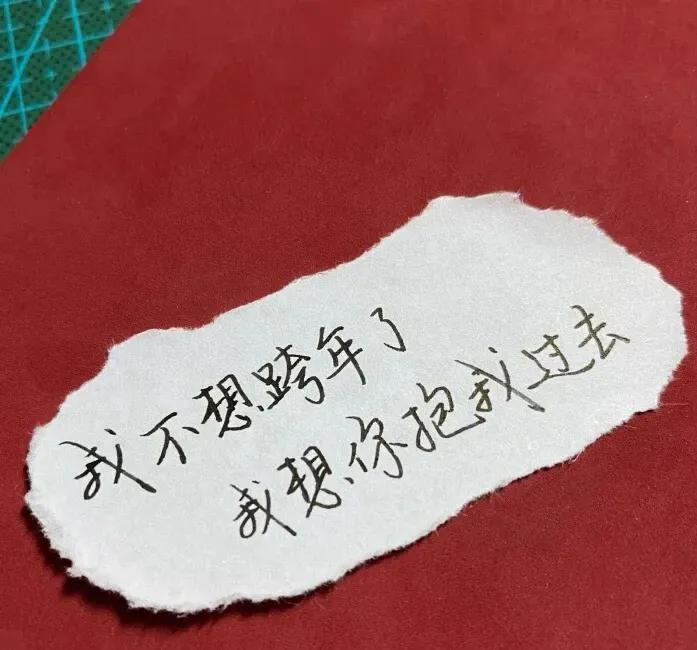 我不想跨年了
我想你抱我过去